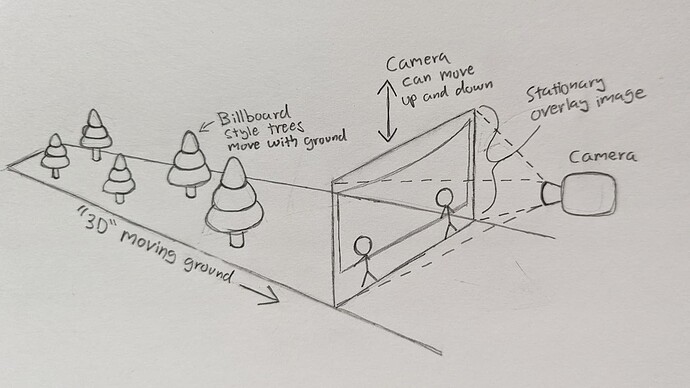 Camera
can move
up and down
Stationary
overlay image
Billboard
style trees
move with ground
Camera
"3D" moving ground